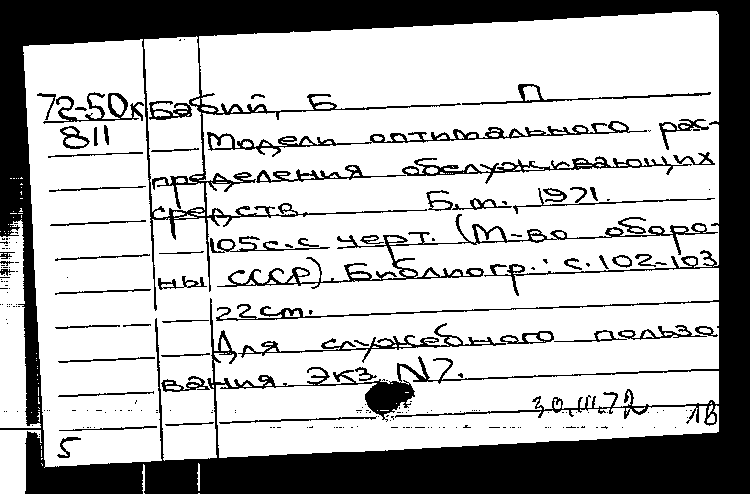 72-50к Бабий, Б П
811 Модели оптимального рас-
пределения обслуживающих
средств. Б.м., 1971.
105с.с черт. (М-во оборо-
ны СССР). Библиогр.: с.102-103
22см.
Для служебного пользо
вания. Экз N7.
30.III.72 1В
5